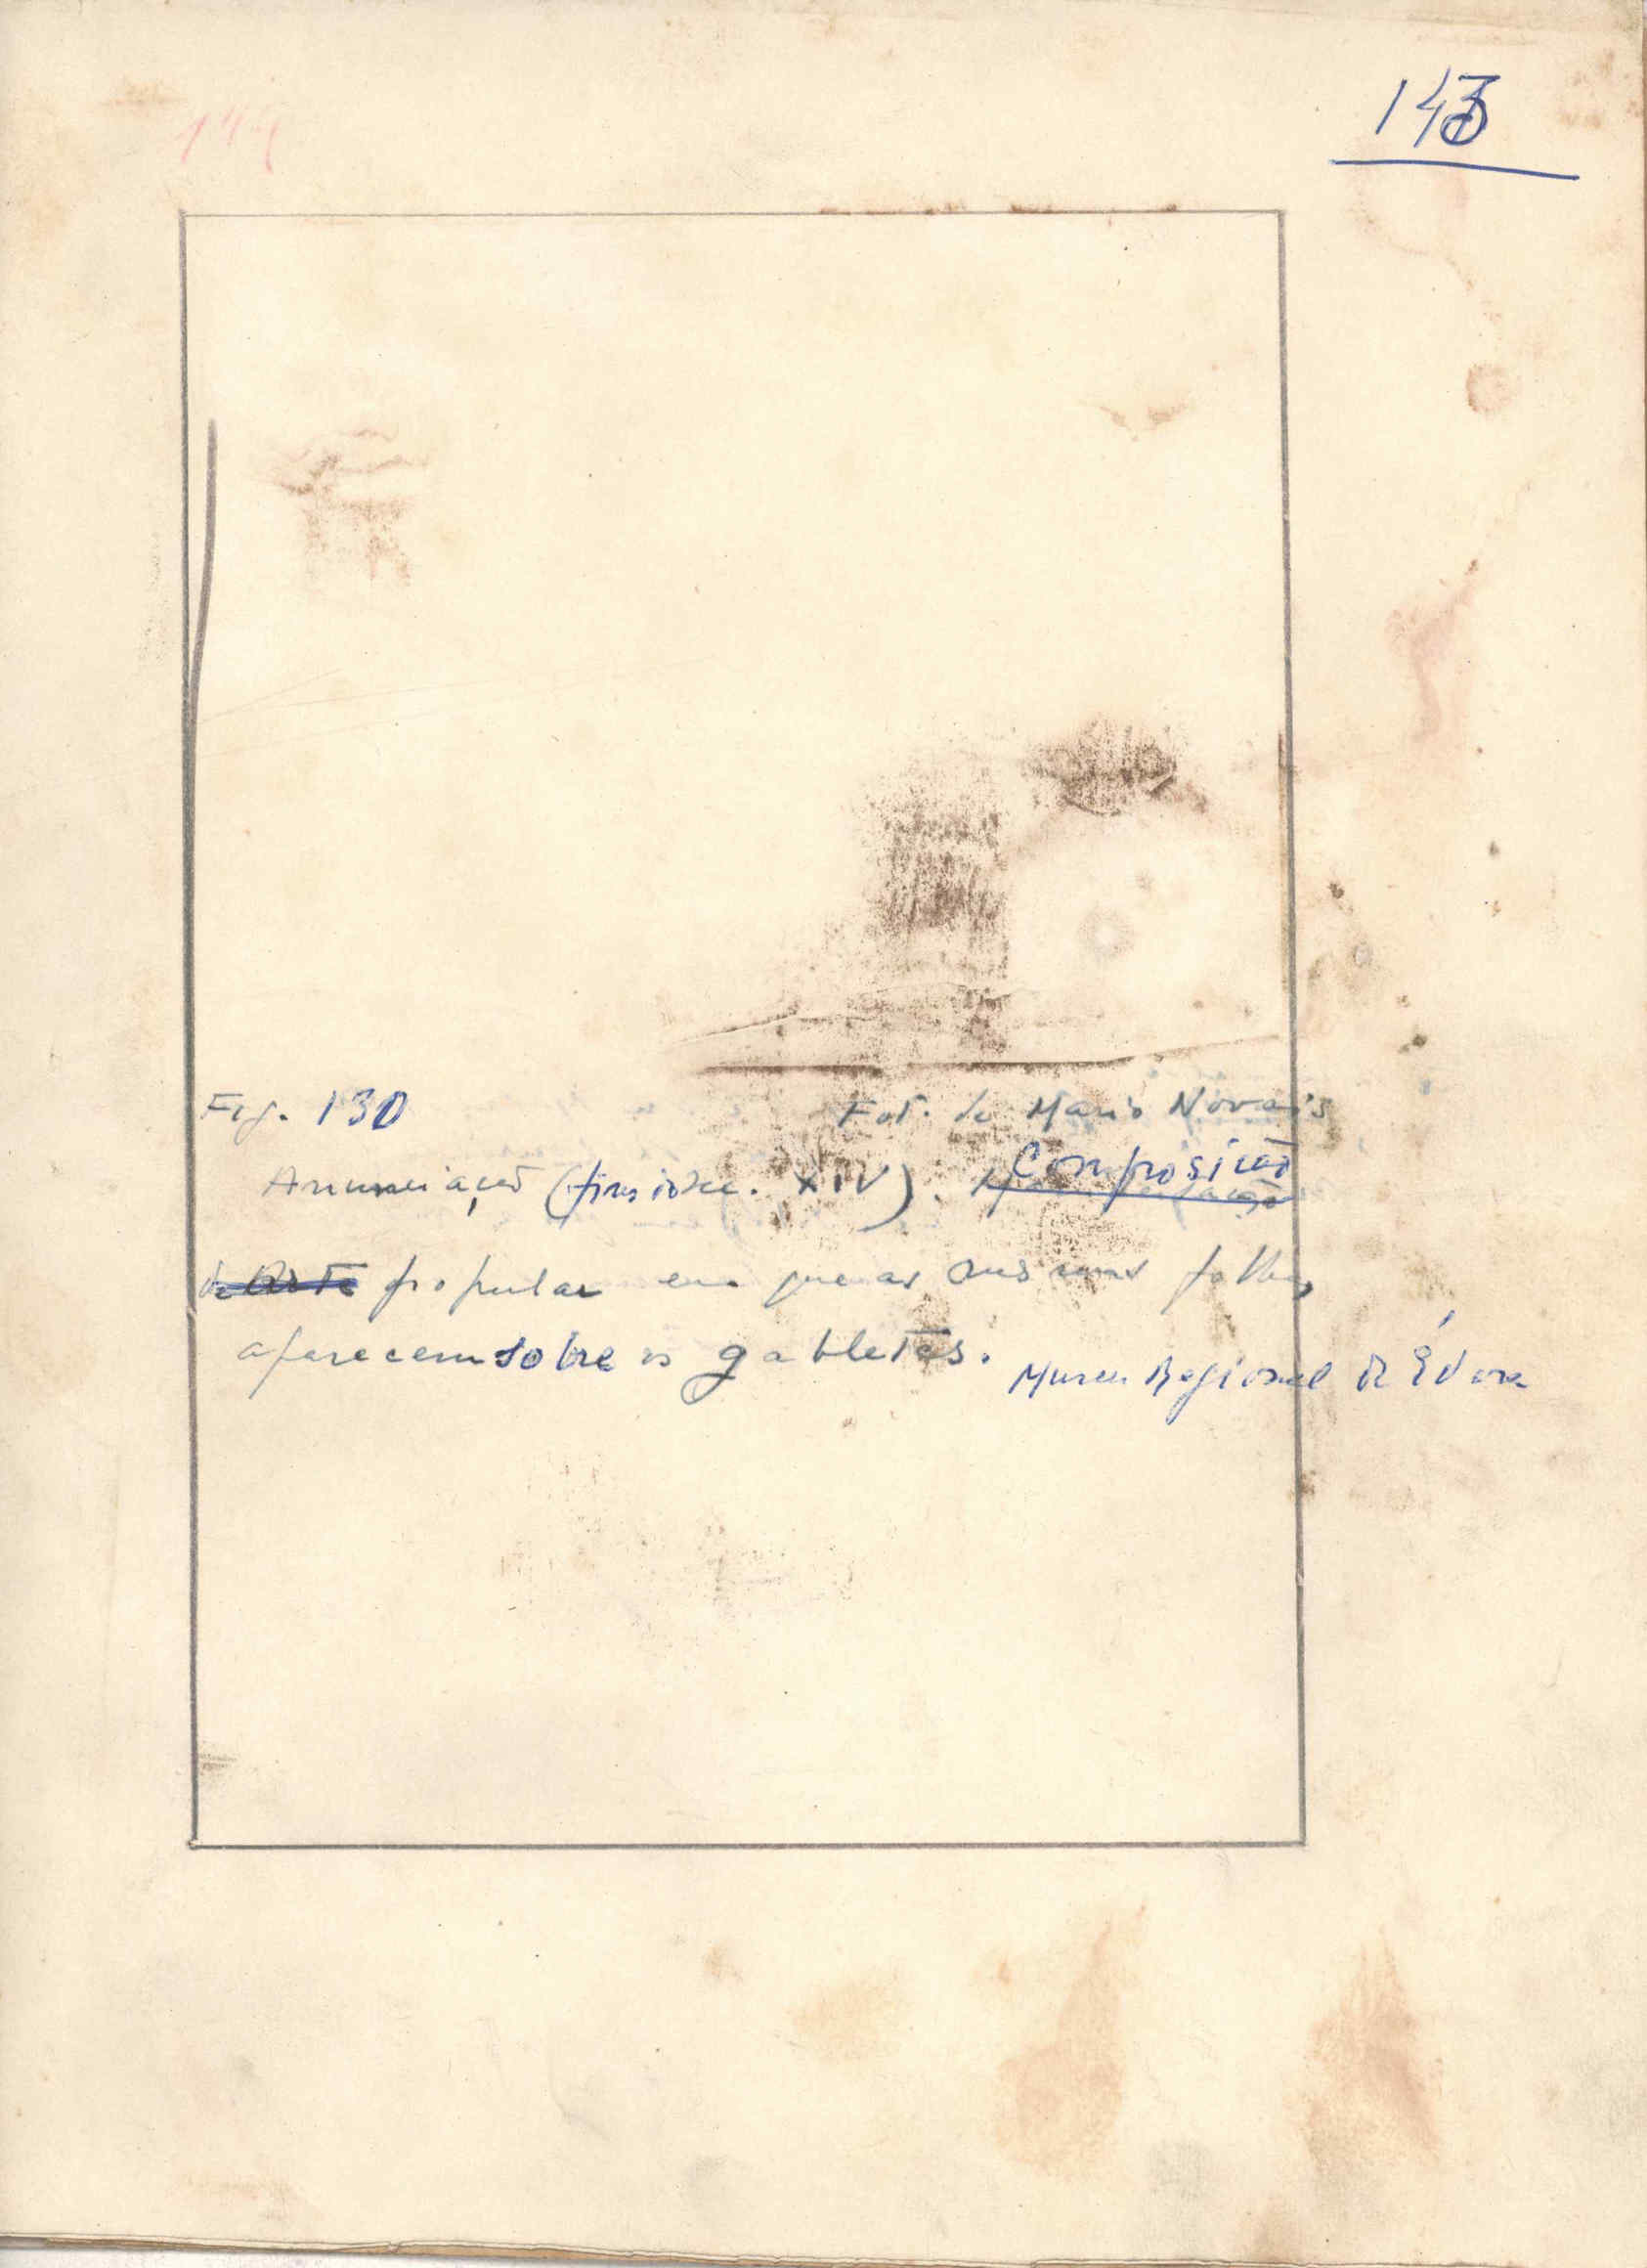 143
Fig. 130 Fot. de Mario Novais
Anunciação (fins do séc. XIV). Composição
de Arte popular em que as mesmas folhas
aparecem sobre os gabletes. Museu Regional de Évora